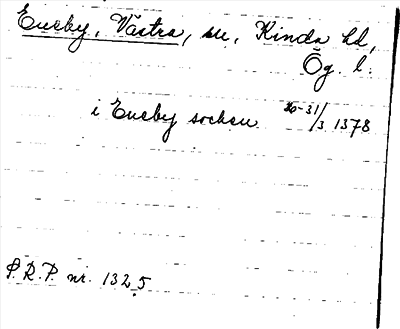 Eneby, Västra, sn, Kinda hd,
Ög. l.
i Eneby socken 26-31/3 1378
S.R.P. nr. 1325